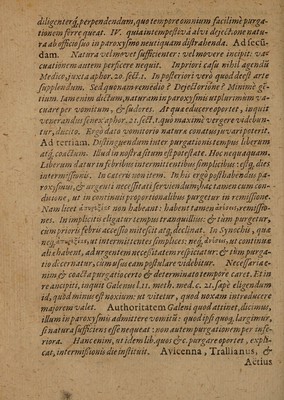 diligenterq́, perpendendum, quo tempore omnium facilimè purga-
tionem ferre queat. IV. quia intempestiva alvi dejectione natu-
ra ab officio suo in paroxysmo neutiquam distrahenda. Ad secũ-
dam. Natura vel movet sufficienter: vel movere incipit: va-
cuationem autem perficere nequit. In priori casu nihil agendũ
Medico, juxta aphor. 20. sect. 1. In posteriori verò quod deest arte
supplendum. Sed quonam remedio? Dejectorione? Minimè gẽ-
tium. tamen im dictum, naturam in paroxysmis ut plurimum va-
cuare per vomitum, & sudores. At qua educere oportet, inquit
venerandus senex aphor. 21. sect. 1. quo maximè vergere videbun-
tur, ducito. Ergò dato vomitorio natura conatus juvari poterit.
Ad tertiam. Distinguendum inter purgationis tempus liberum
arq́, coactum. Illud in nostra situm est potestate. Hoc nequaquam.
Liberum datur in febribus intermittentibus simplicibus: estq́, diei
intermissionis. In cateris non item. In his ergò posthabendus pa-
roxysmus, & urgenti necessitati serviendum, hac tamen cum con-
ditione, ut in continuis proportionalibus purgetur in remissione.
Nam licet non habeant: habent tamen remissio-
nes. In implicitis eligatur tempus tranquillum: & tum purgetur,
cum prioris febris accessio mitescit atq́, declinat. In Synochis, quæ
neq́, ut intermittentes simplices: neq́, ut continuæ
aliæ habent, ad urgentem necessitatem respicitur: & tum purga-
tio dicernatur, cum ista eam postulare videbitur. Necessaria e-
nim & coacta purgatio certo & determinato tempore caret. Et in
re ancipiti, inquit Galenus l. 11. meth. med. c. 21. sæpè eligendum
id, quòd minus est noxium: ut vitetur, quod noxam introducere
majorem valet. Authoritatem Galeni quod attinet, dicimus,
illum in paroxysmis admittere vomitũ: quod ipsi quoq, largimur,
si natura sufficiens esse nequeat: non autem purgationem per infe-
riora. Hanc enim, ut idem lib. quos &c. purgare oportet, expli-
cat, intermissionis die instituit. Avicenna, Trallianus, &
Aetius